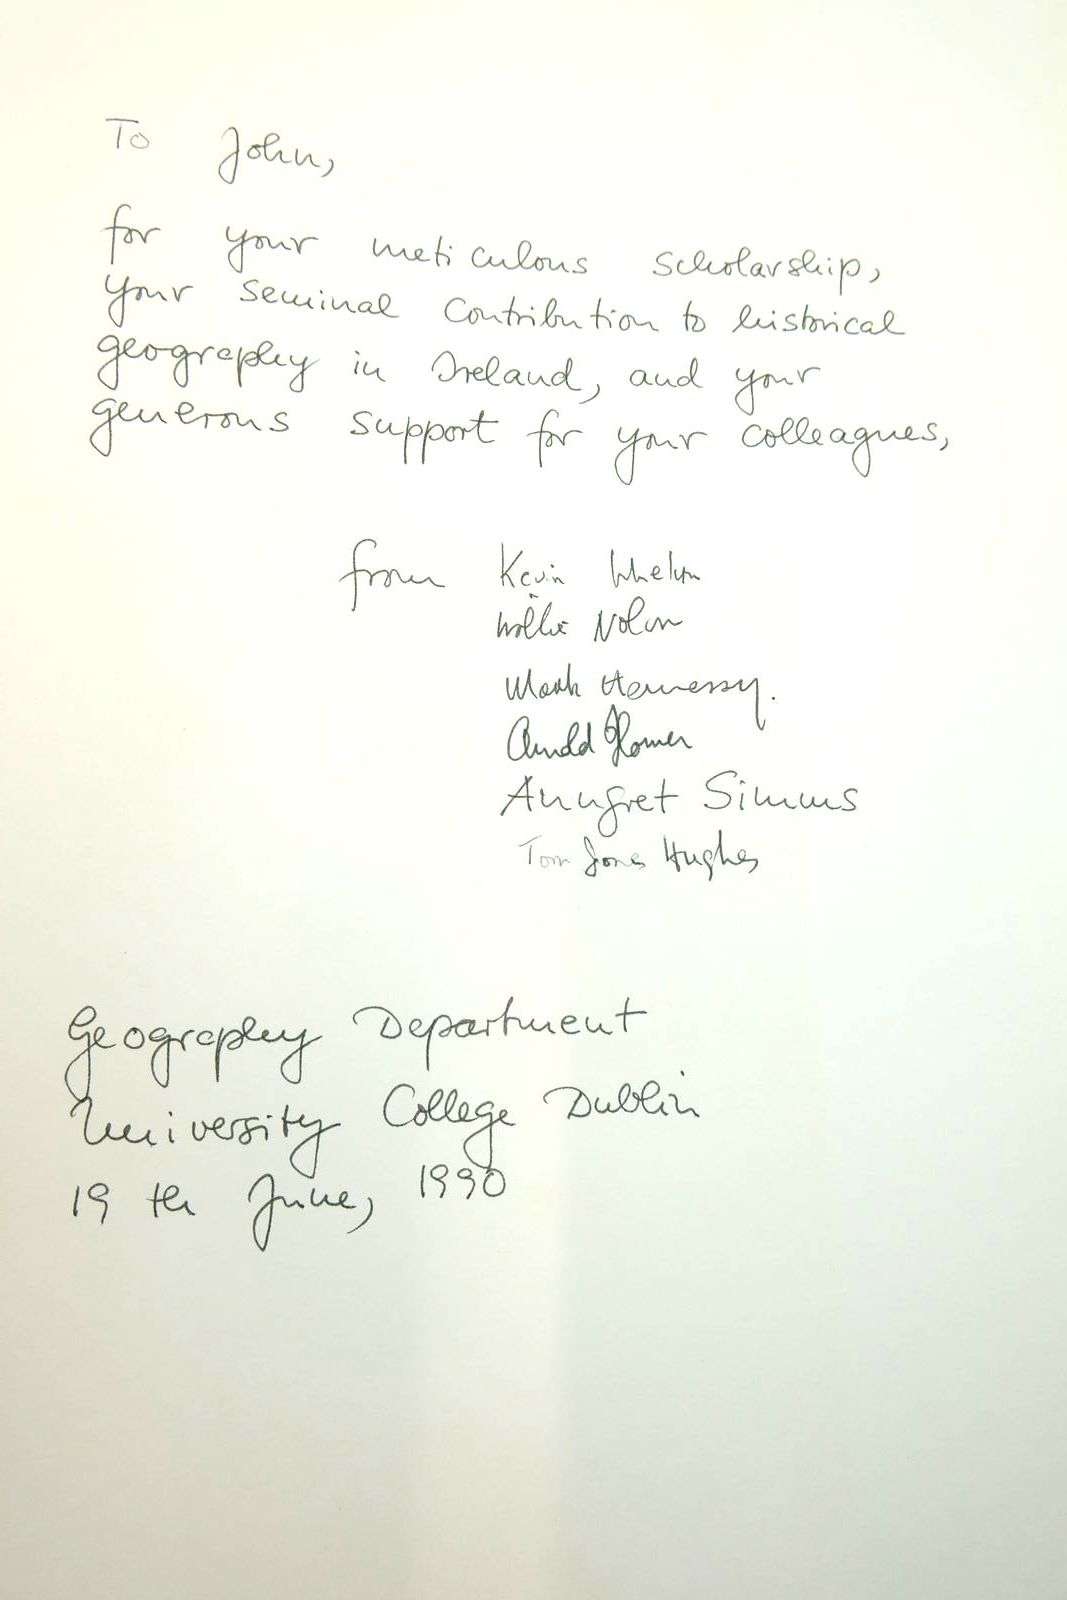 To John,
for your meticulous scholarship,
your seminal contribution to historical
geography in Ireland, and your
generous support for your colleagues,
from Kevin Whelan
Willie Nolan
Mark Hennessy.
Arnold Horner
Anngret Simms
Tom Jones Hughes
Geography Department
University College Dublin
19 th June, 1990